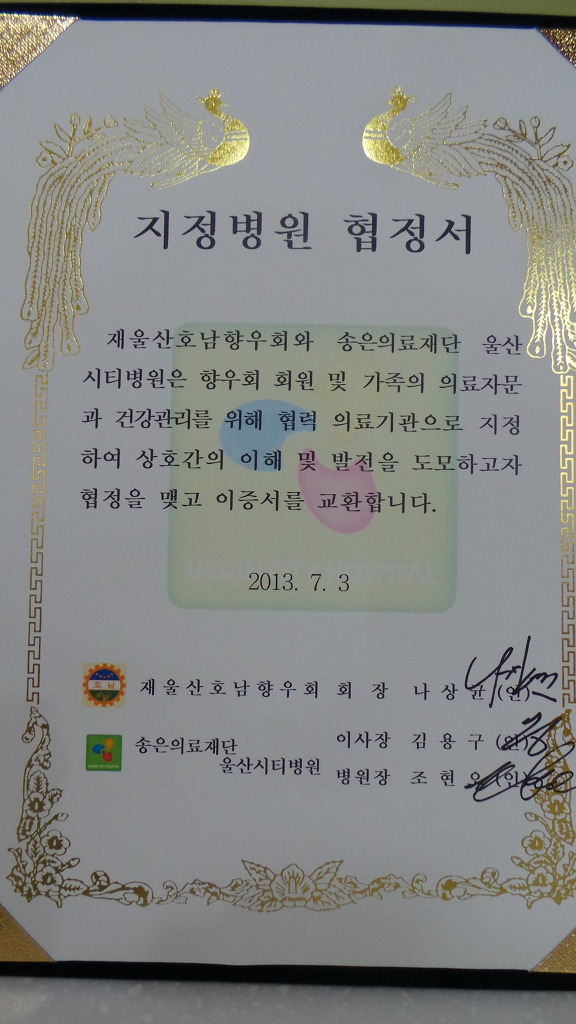 지정병원 협정서
재울산호남향우회와 송은의료재단 울산
시티병원은 향우회 회원 및 가족의 의료자문
과 건강관리를 위해 협력 의료기관으로 지정
하여 상호간의 이해 및 발전을 도모하고자
협정을 맺고 이증서를 교환합니다.
ULSAN CITY HOSPITAL
2013. 7. 3
호남
재울산호남향우회 회 장 나 상 균 (인)
송은의료재단 이사장 김 용 구 (인)
울산시티병원 병원장 조 현 오 (인)